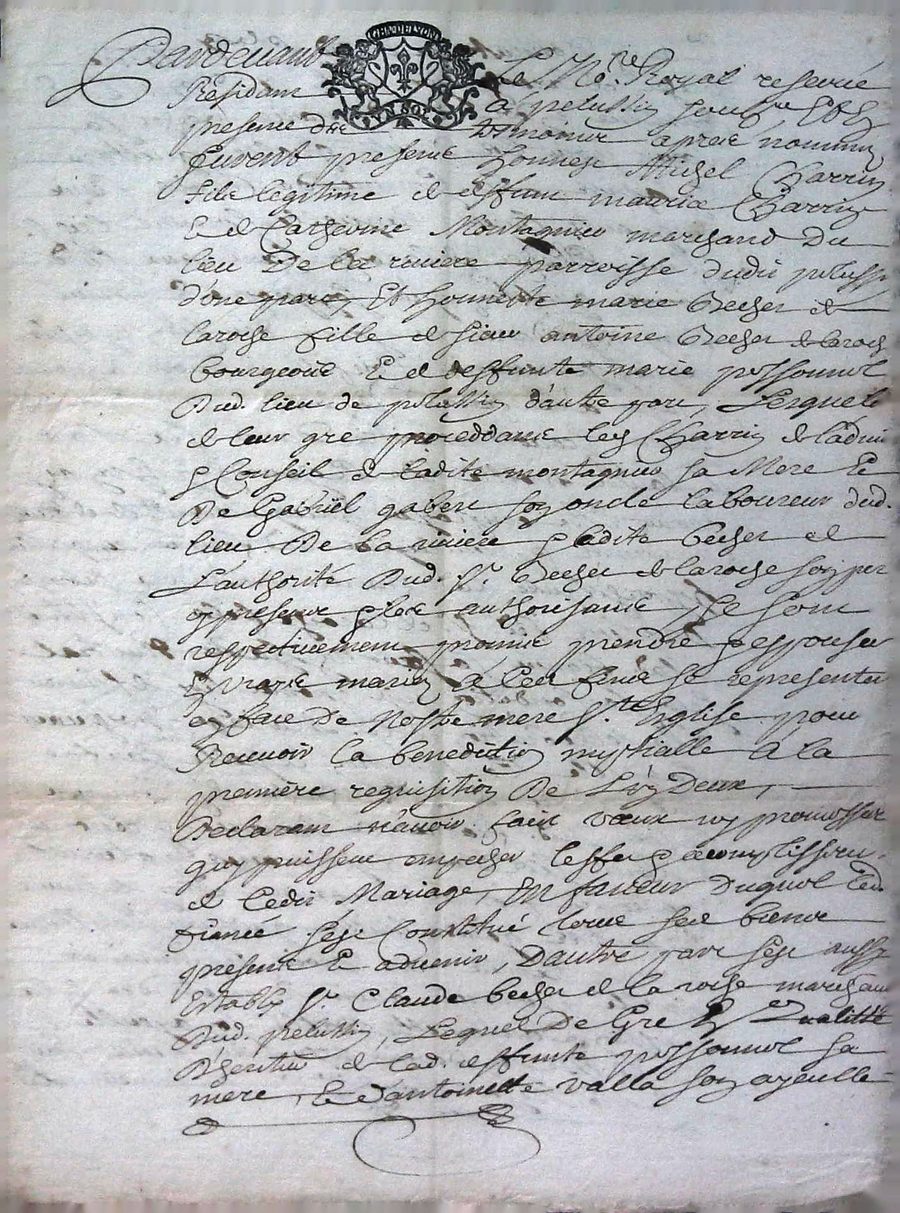 Pardevant
GEN DE LYON
UN SOL
Le No.re Royal reservé
Residant a pelussin soub.ne Et En
presence des tesmoins apres nommez
furent presens honneste Michel Charrin
fils legitime de deffunt maurice Charrin
Et de Catherine Montagnier marchand Du
lieu De la riviere parroisse dudit pelussin
d'une part, Et honneste marie Becher de
laroche fille de sieur antoine Becher de laroche
bourgeois Et de deffunte marie possonnel
Dud. lieu de pelussin d'autre part, Lesquels
de leur gre proceddants led. Charrin de ladvis
& Conseil de ladite montagnier sa Mere Et
De Gabriel gabert son oncle laboureur dud.
lieu De la riviere & ladite becher de
L'authorité Dud. Sr. Becher de laroche son pere
cy present & les authorisants, se sont
respectivement promis prendre & espouser
En vrays mariez a ces fins se representer
en face De Nostre mere Ste Eglise pour
Recevoir la benediction nuptialle A la
premiere requisition De L'un Deux,
Declarant n'avoir fait vœux ny promesses
quy puissent empecher leffet & accomplissement
de ledit Mariage, En faveur Duquel led.
fiancé s'est Constitué tous ses biens
presents Et advenir, D'autre part s'est aussy
Estably Sr Claude becher de la roche marchand
Dud. pelussin, Lequel De Gre En qualitté
D'heritier de lad. deffunte possonnel sa
mere, Et d'antoinette valla son ayeulle